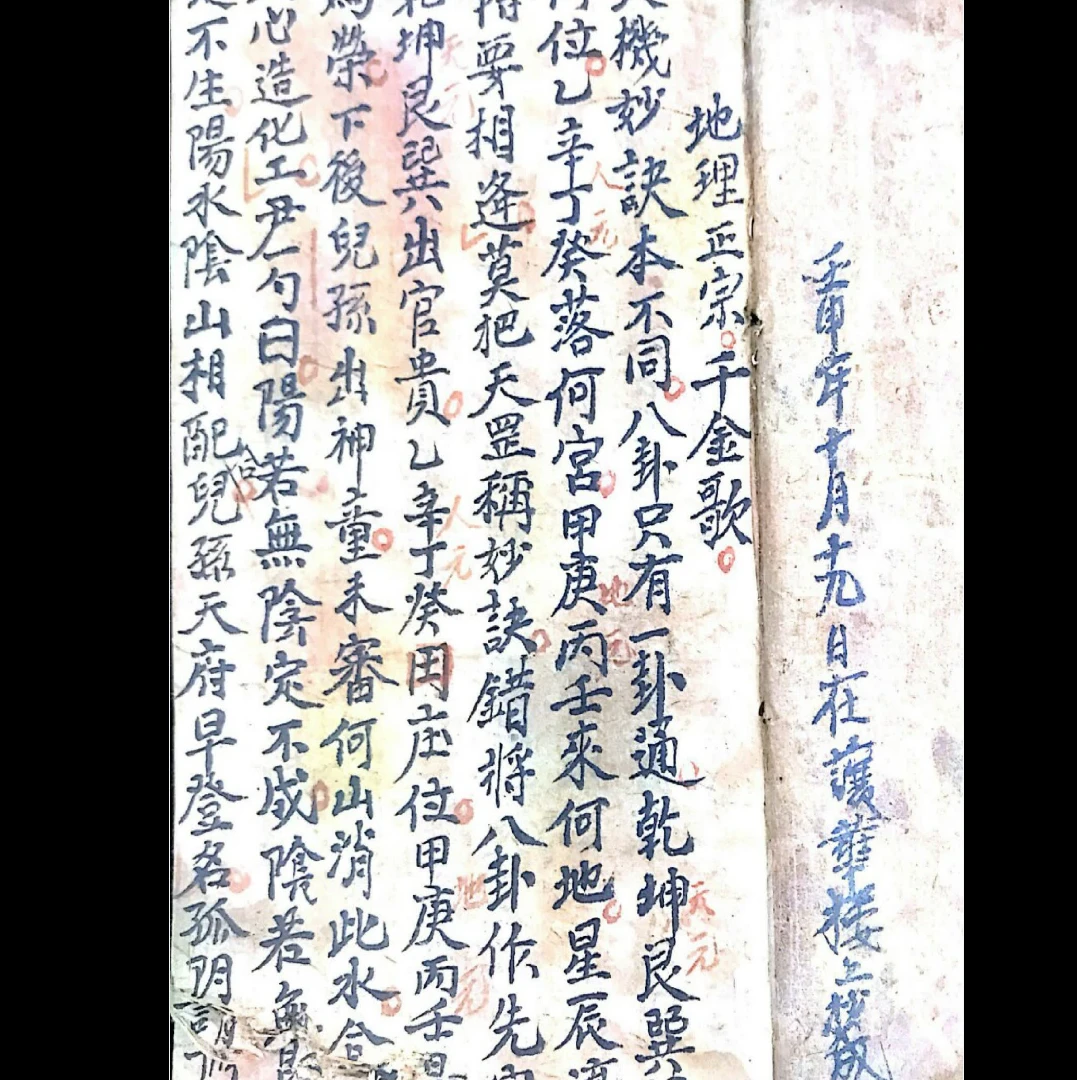 壬申年十月十九日在護華楼上抄成
地理正宗千金歌
機妙訣本不同八卦只有一卦通乾坤艮巽
天元
位乙辛丁癸落何宮甲庚丙壬來何地星辰
人元
地元
要相逢莫把天罡稱妙訣錯将八卦作先
坤艮巽出官貴乙辛丁癸田庄位甲庚丙壬
人元
地元
榮下後兒孫出神童未審何山消此水合
心造化工尹勺曰陽若無陰定不成陰若無
不生陽水陰山相配兒孫天府早登名孤